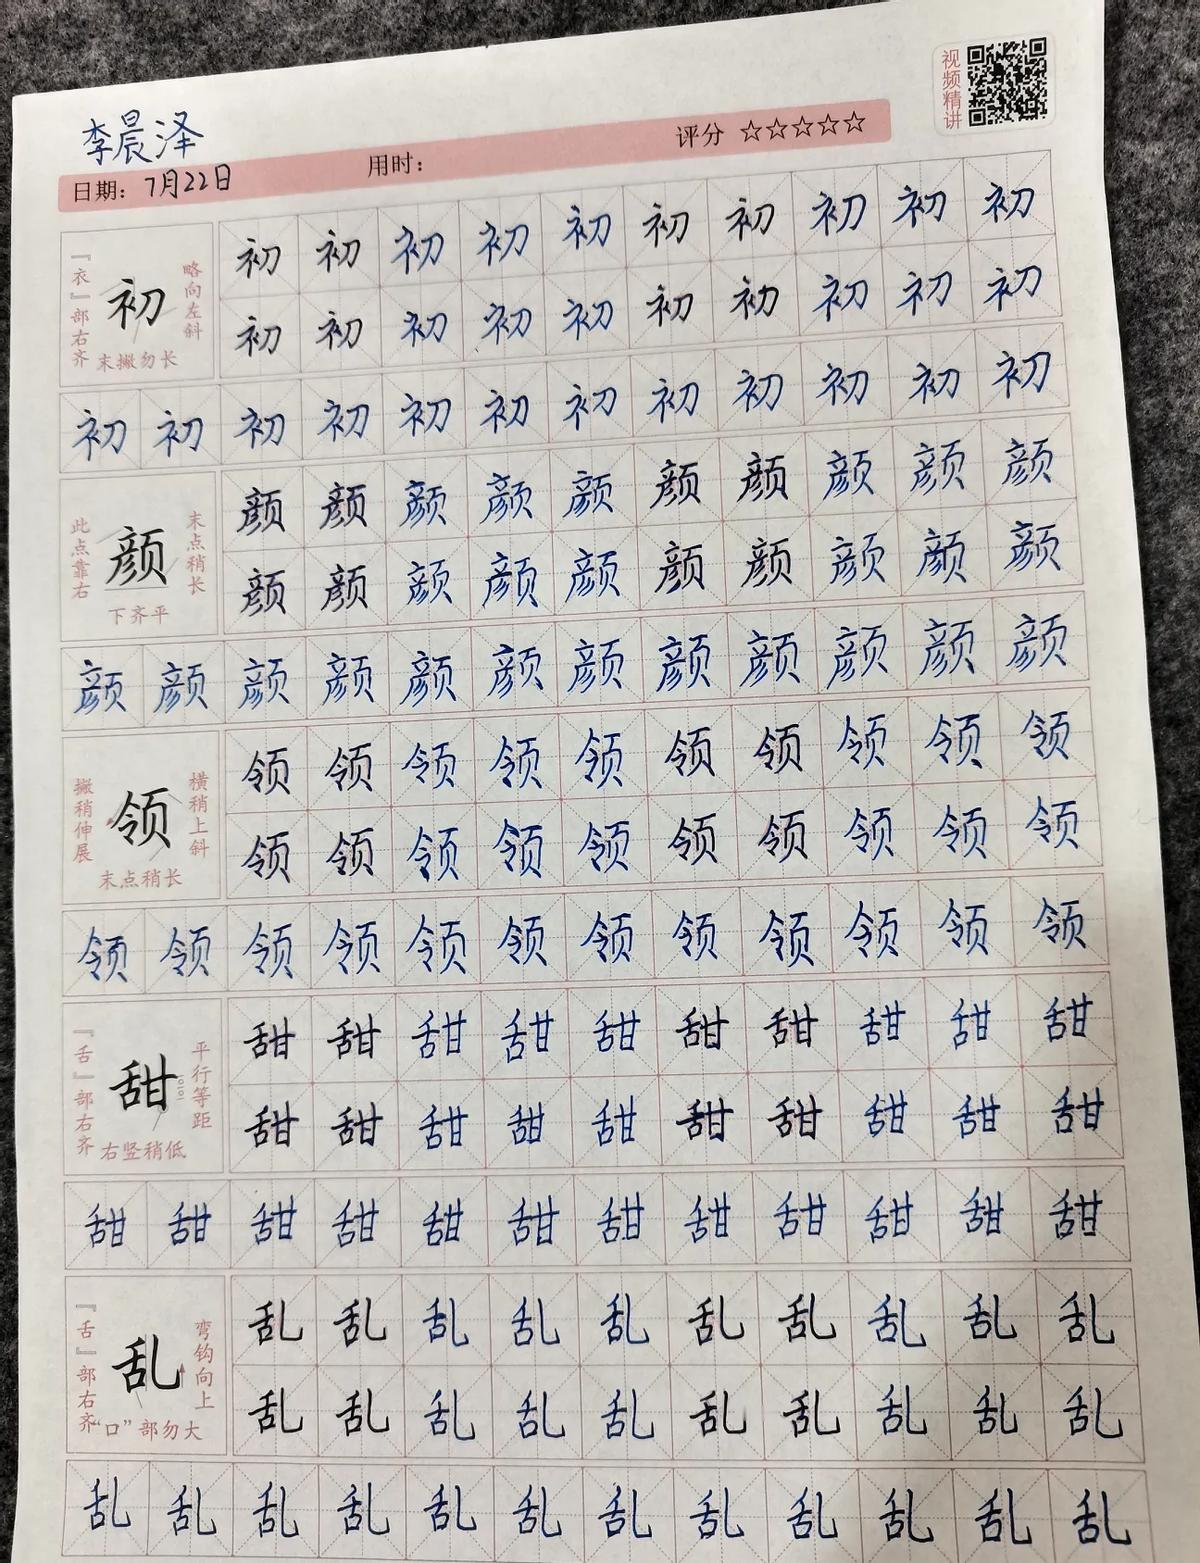 视频精讲
李晨泽
日期：7月22日 用时： 评分 ☆☆☆☆☆
『衣』部右齐 初 略向左斜
末撇勿长
初初初初初初初初初初
初初初初初初初初初初
初初初初初初初初初初初初
此点靠右 颜 末点稍长
下齐平
颜颜颜颜颜颜颜颜颜颜
颜颜颜颜颜颜颜颜颜颜
颜颜颜颜颜颜颜颜颜颜颜颜
撇稍伸展 领 横稍上斜
末点稍长
领领领领领领领领领领
领领领领领领领领领领
领领领领领领领领领领领领
『舌』部右齐 甜 平行等距
右竖稍低
甜甜甜甜甜甜甜甜甜甜
甜甜甜甜甜甜甜甜甜甜
甜甜甜甜甜甜甜甜甜甜甜甜
『舌』部右齐 乱 弯钩向上
“口”部勿大
乱乱乱乱乱乱乱乱乱乱
乱乱乱乱乱乱乱乱乱乱
乱乱乱乱乱乱乱乱乱乱乱乱